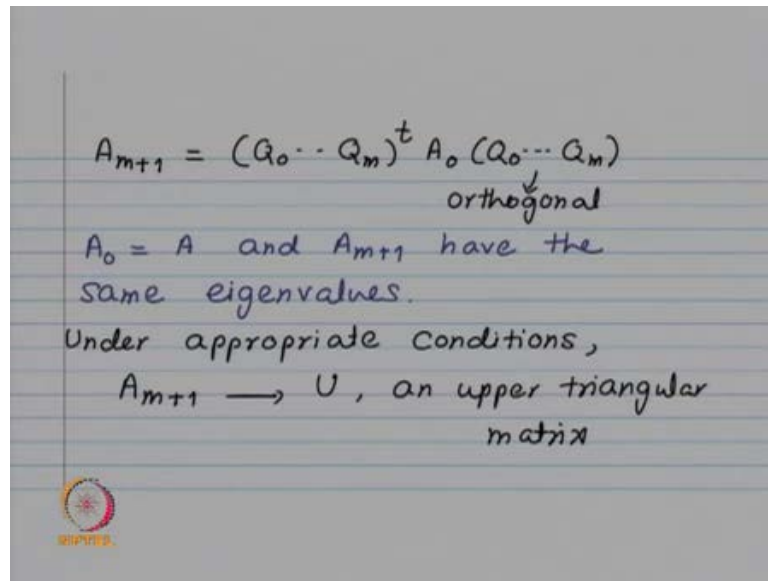 A_{m+1} = (Q_0 ·· Q_m)^t A_0 (Q_0 ··· Q_m)
orthogonal
A_0 = A and A_{m+1} have the
same eigenvalues.
Under appropriate conditions,
A_{m+1} ⟶ U, an upper triangular
matrix